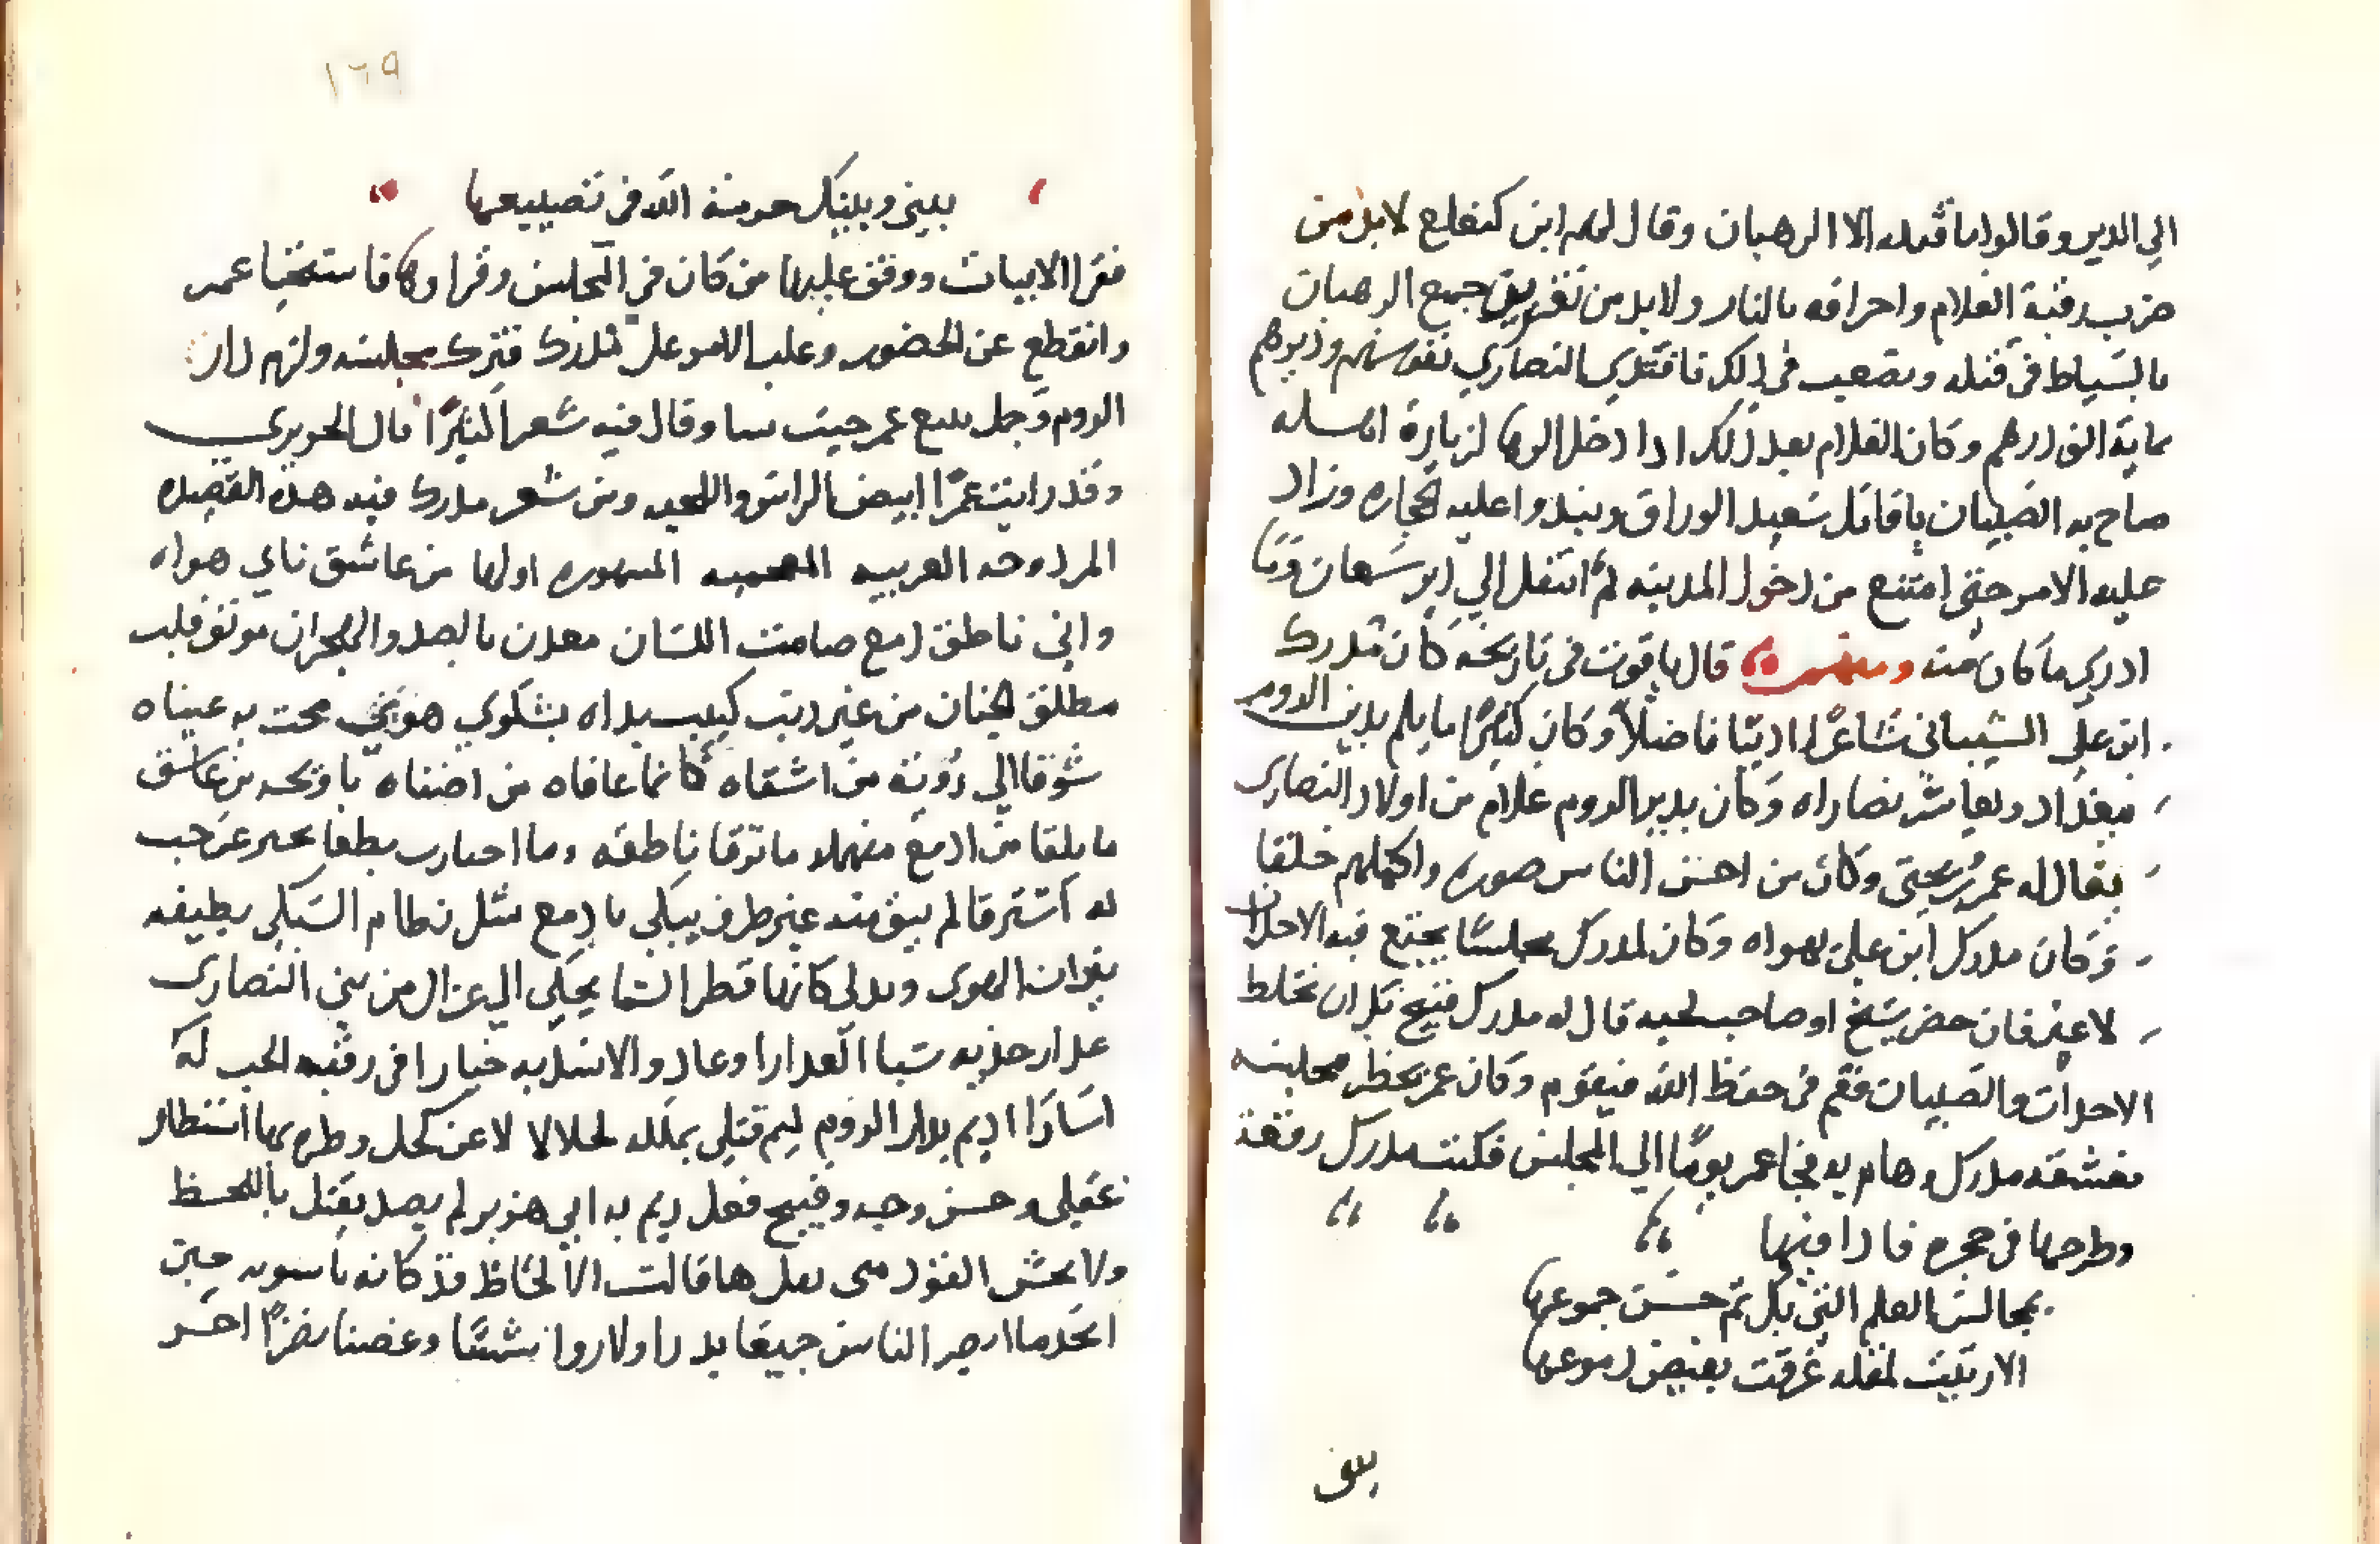 الى الدير وقالوا ما قتله الا الرهبان وقال لهم ابن كنغلع لابد من
ضرب رقبة الغلام واحراقه بالنار ولابد من تغريق جميع الرهبان
بالسياط فى قتله وتصعب فى ذلك فافتدى النصارى نفوسهم وديرهم
بماية الف درهم وكان الغلام بعد ذلك اذا دخل الرها لزيارة اهله
صاح به الصبيان يا قاتل سعيد الوراق وينبدوا عليه الحجاره وزاد
عليه الامر حتى امتنع من دخول المدينه ثم انتقل الى دير سمعان وما
ادرى ما كان منه ومنهم قال ياقوت فى تاريخه كان مدرك
ابن على الشيبانى شاعرا اديبا فاضلا وكان كثيرا ما يلم بدير الروم
ببغداد ويعاشر نصاراه وكان بدير الروم غلام من اولاد النصارى
يقال له عمر بن يحيى وكان من احسن الناس صوره واكملهم خلقا
وكان مدرك ابن على يهواه وكان لمدرك مجلسا يجتمع فيه الاحداث
لا غير فان حضر شيخ او صاحب لحيه قال له مدرك قبيح بك ان تختلط
الاحداث والصبيان فقم فى حفظ الله فيقوم وكان عمر يحظر مجلسه
فعشقه مدرك وهام به فجا عمر يوما الى المجلس فكتب مدرك رقعة
وطرحها فى حجره فاذا فيها
بمجالس العلم التى بك تم حسن جموعها
الا رثيت لمقله غرقت بفيض دموعها
بينى
١٦٩
بينى وبينك حرمة الله فى تضييعها
فقرا الابيات ووقف عليها من كان فى المجلس وقراوها فاستحيا عمر
وانقطع عن الحضور وغلب الامر على مدرك فترك مجلسه ولزم دار
الروم وجعل يتبع عمر حيث سا وقال فيه شعرا كثيرا قال الحريرى
وقد رايت عمرا ابيض الراس واللحيه ومن شعر مدرك فيه هذه القصيده
المزدوجه الغريبه المشهوره اولها من عاشق ناى هواه
دانى ناطق دمع صامت اللسان معذب بالصد والهجران موثق قلب
مطلق الجثمان من غير ذنب كسبت يداه بشكوى هوى نمت به عيناه
شوقا الى روية من اشقاه كانما عافاه من اضناه يا ويحه من عاشق
ما يلقا من ادمع منهله ما ترقا ناطقه وما احارت نطقا تخبر عن حب
له استرقا لم يبق منه غير طرف يبكى بادمع مثل نظام السلك تطفيه
نيران الهوى وتذكى كانها قطر السما يحكى الى غزال من بنى النصارى
عذار خديه سبا العذارا وغادر الاسد به حيارا فى رقبه الحب له
اسارا ريم بدار الروم ليم قتلى بمقله كحلا لا عن كحل وطره بها استطار
عقلى وحسن وجه وقبيح فعل ريم به اى هزبر لم يصد يقتل باللحظ
ولا يخش القود متى يقل ها قالت الالحاظ قد كانه ناسوته حين
اتحد ما ابصر الناس جميعا بدرا ولا راوا شمسا وغصنا نضرا احسن